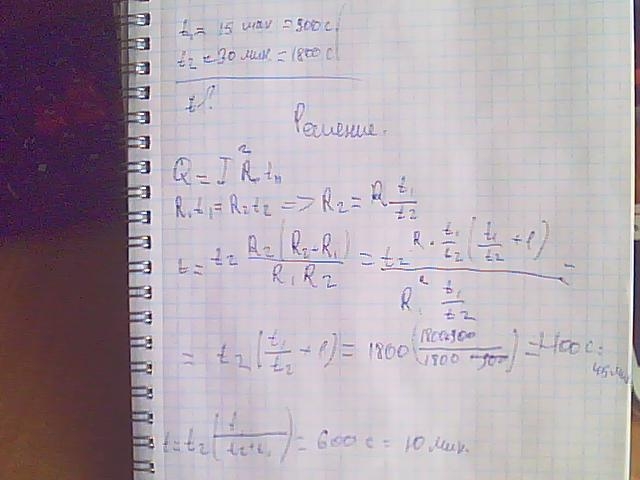 t₁ = 15 мин = 900 с
t₂ = 30 мин. = 1800 с
t-?
Решение.
Q = I² R₁ tₙ
R₁t₁ = R₂t₂ => R₂ = R₁ t₁/t₂
t = t₂ R₂(R₂-R₁)/R₁R₂ = t₂ R · t₁/t₂ (t₁/t₂ + 1) / R₁² t₁/t₂ =
= t₂ (t₁/t₂ + 1) = 1800 (1800+900/1800) = 2700 с = 45 мин
t = t₂ (t₁/t₂+t₁) = 600 с = 10 мин.